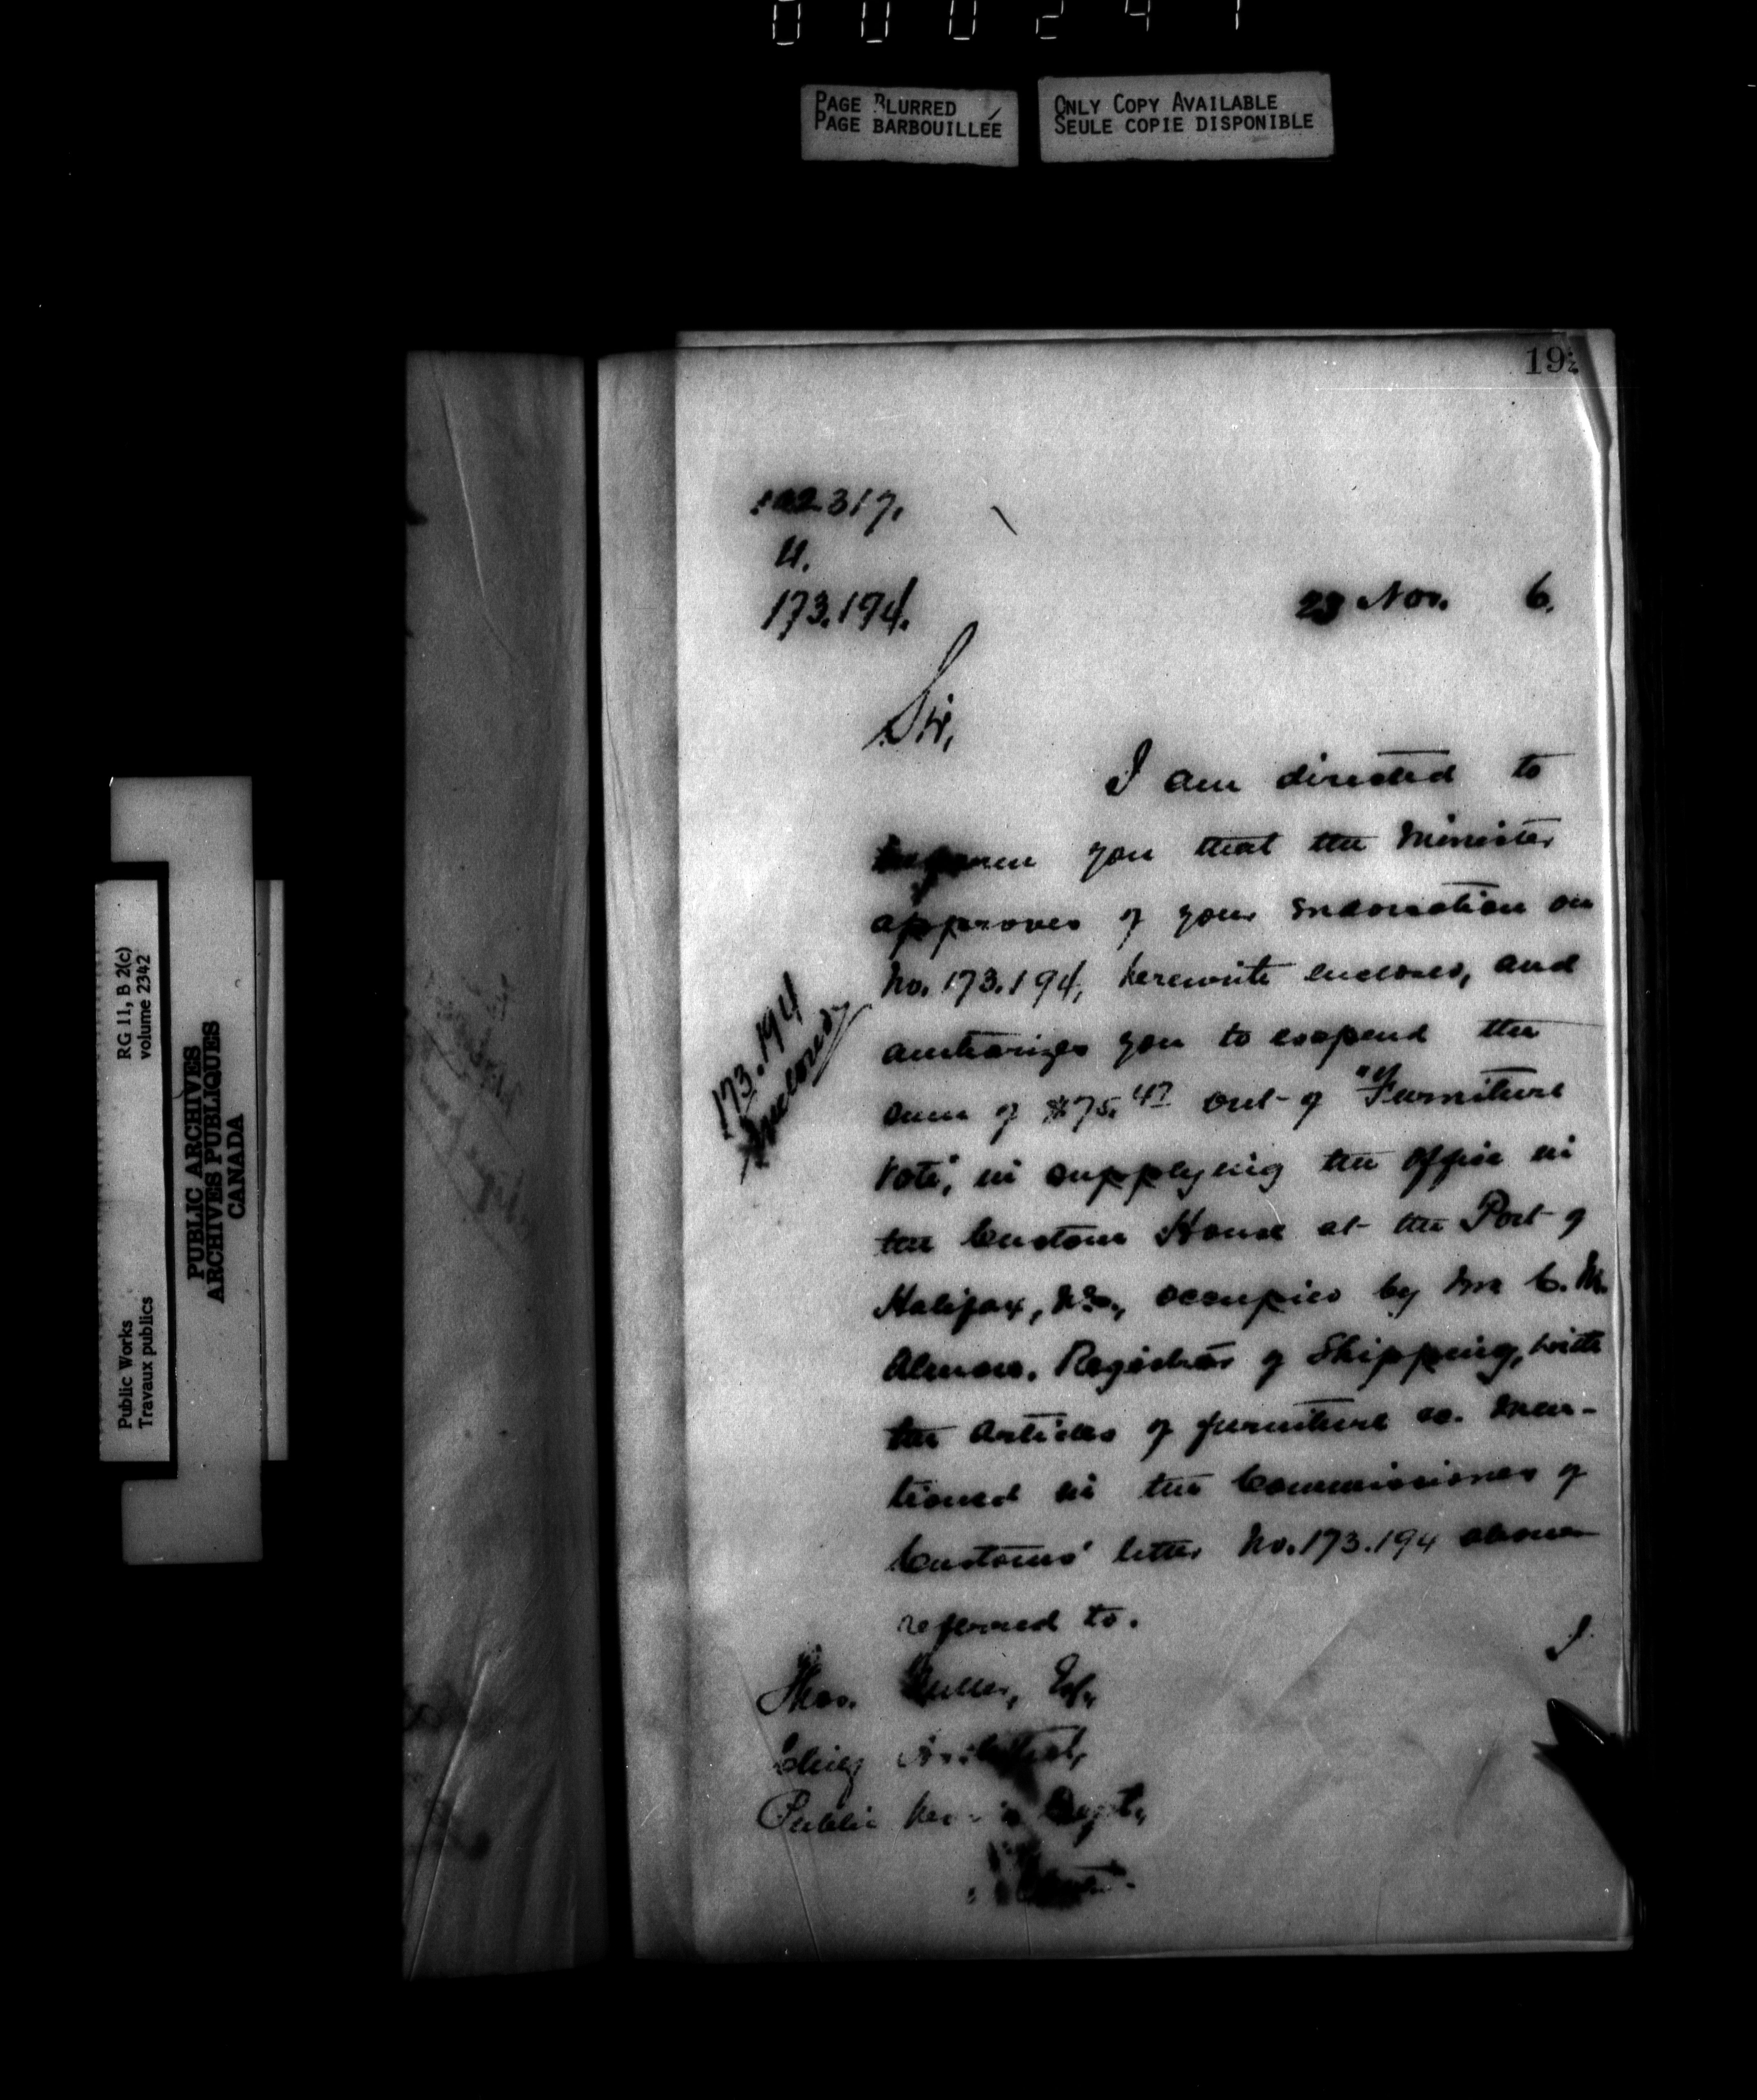 000241
PAGE BLURRED
PAGE BARBOUILLÉE
ONLY COPY AVAILABLE
SEULE COPIE DISPONIBLE
RG 11, B 2(c)
volume 2342
Public Works
Travaux publics
PUBLIC ARCHIVES
ARCHIVES PUBLIQUES
CANADA
19
2317.
U.
173.194.
23 Nov. 6.
Sir,
I am directed to
you that the Minister
approves of your indorsation on
No. 173.194, herewith enclosed, and
authorizes you to expend the
sum of $75.47 out of "Furniture
Vote", in supplying the Office in
the Custom House at the Port of
Halifax, N.S., occupied by Mr C. M.
Almon, Registrar of Shipping, with
the articles of furniture as men-
tioned in the Commissioner of
Customs' letter No. 173.194 above
referred to.
I
173.194
Enclosed
Thos. Fuller, Esq.,
Chief Architect,
Public Dept.,